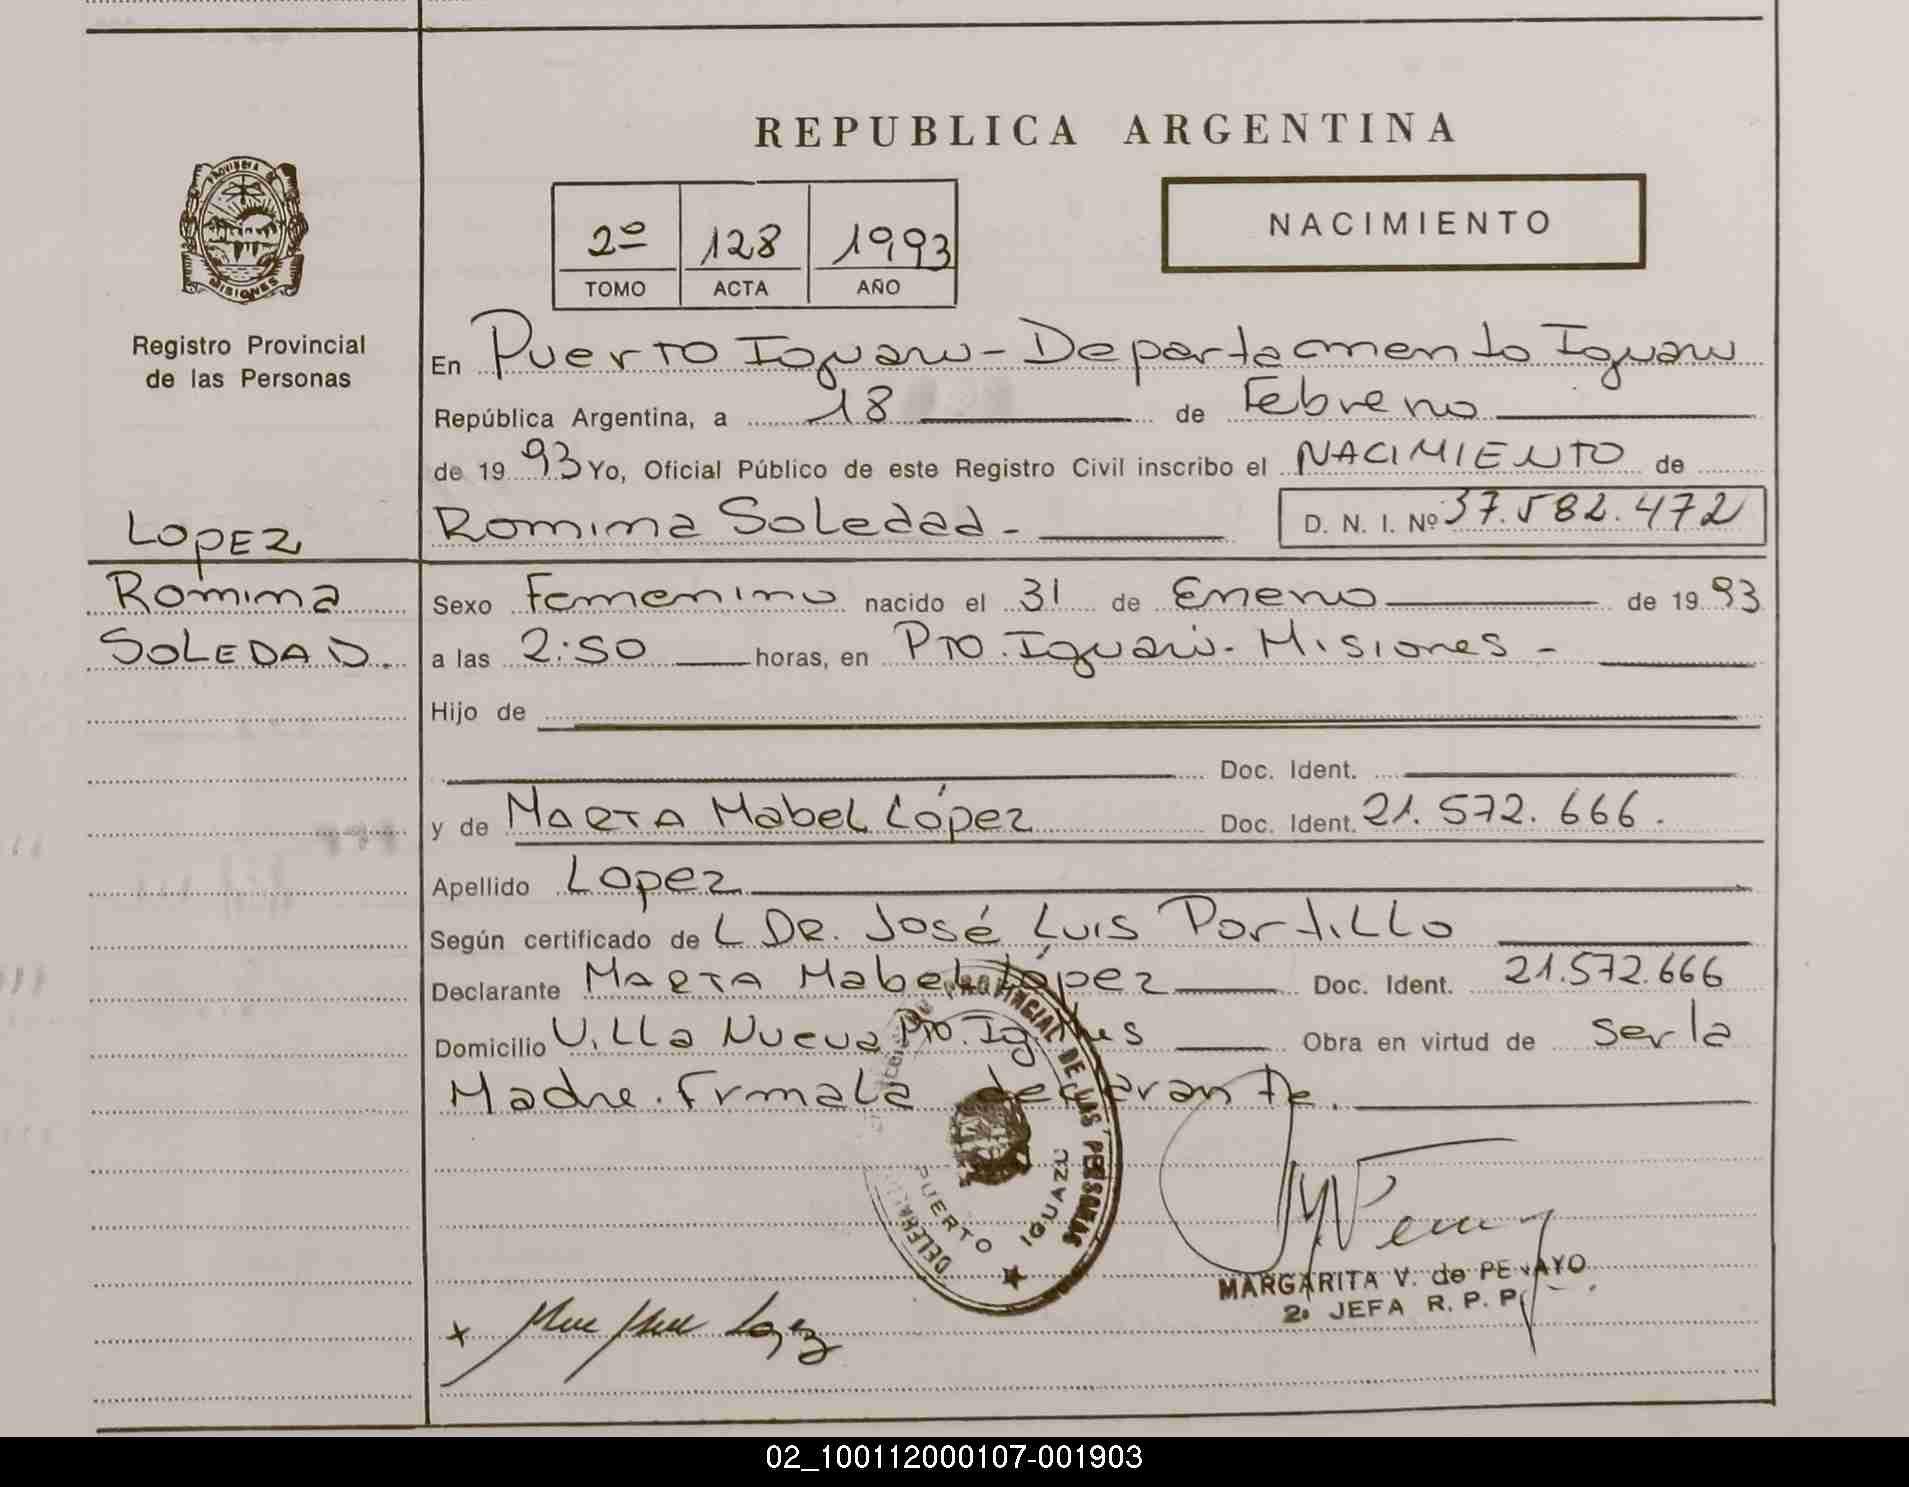 REPUBLICA ARGENTINA
PROVINCIA DE
MISIONES
Registro Provincial
de las Personas
2º 128 1993
TOMO ACTA AÑO
NACIMIENTO
En Puerto Iguazu - Departamento Iguazu
República Argentina, a 18 de Febrero
de 1993 Yo, Oficial Público de este Registro Civil inscribo el NACIMIENTO de
Romina Soledad - D. N. I. Nº 37.582.472
LOPEZ
Romina
SOLEDAD.
Sexo Femenino nacido el 31 de Enero de 1993
a las 2:50 horas, en Pto. Iguazú - Misiones -
Hijo de
Doc. Ident.
y de MARTA Mabel López Doc. Ident. 21.572.666.
Apellido Lopez
Según certificado de L DR. José Luis Portillo
Declarante MARTA Mabel López Doc. Ident. 21.572.666
Domicilio Villa Nueva Pto. Ig. Mnes Obra en virtud de ser la
Madre. Firma la declarante.
PROVINCIAL DE LAS PERSONAS
PUERTO IGUAZU
MARGARITA V. de PENAYO
2º JEFA R. P. P.
x Lopez
02_100112000107-001903